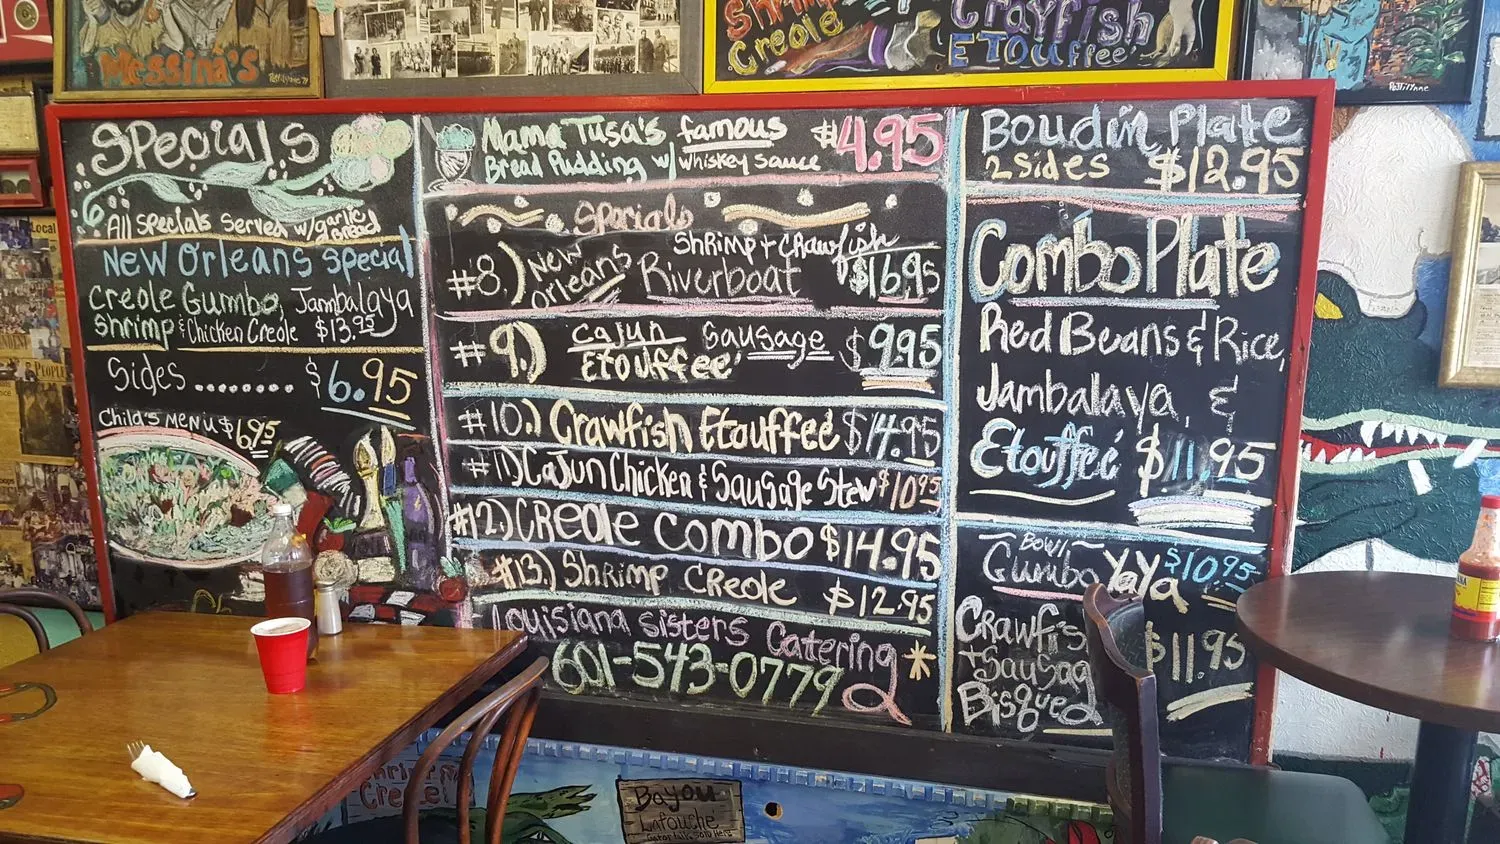 Messina's
Shrimp
Creole
Crayfish
ETouffee'
Specials
All Specials Served w/garlic
Bread
New Orleans Special
Creole Gumbo, Jambalaya
Shrimp & Chicken Creole $13.95
Sides ........ $6.95
Child's Menu $6.95
Mama Tusa's famous
Bread Pudding w/ whiskey sauce $4.95
Specials
#8.) New Orleans Shrimp + Crawfish
Riverboat $16.95
#9.) Cajun Sausage
Etouffee' $9.95
#10.) Crawfish Etouffeé $14.95
#11) Cajun Chicken & Sausage Stew $10.95
#12.) Creole Combo $14.95
#13.) Shrimp Creole $12.95
Louisiana Sisters Catering
601-543-0779
Boudin Plate
2 Sides $12.95
Combo Plate
Red Beans & Rice,
Jambalaya, &
Etouffeé $11.95
Bowl
Gumbo YaYa $10.95
Crawfis
+ Sausag
Bisque $11.95
Shrimp
Creole
Bayou
Lafouche